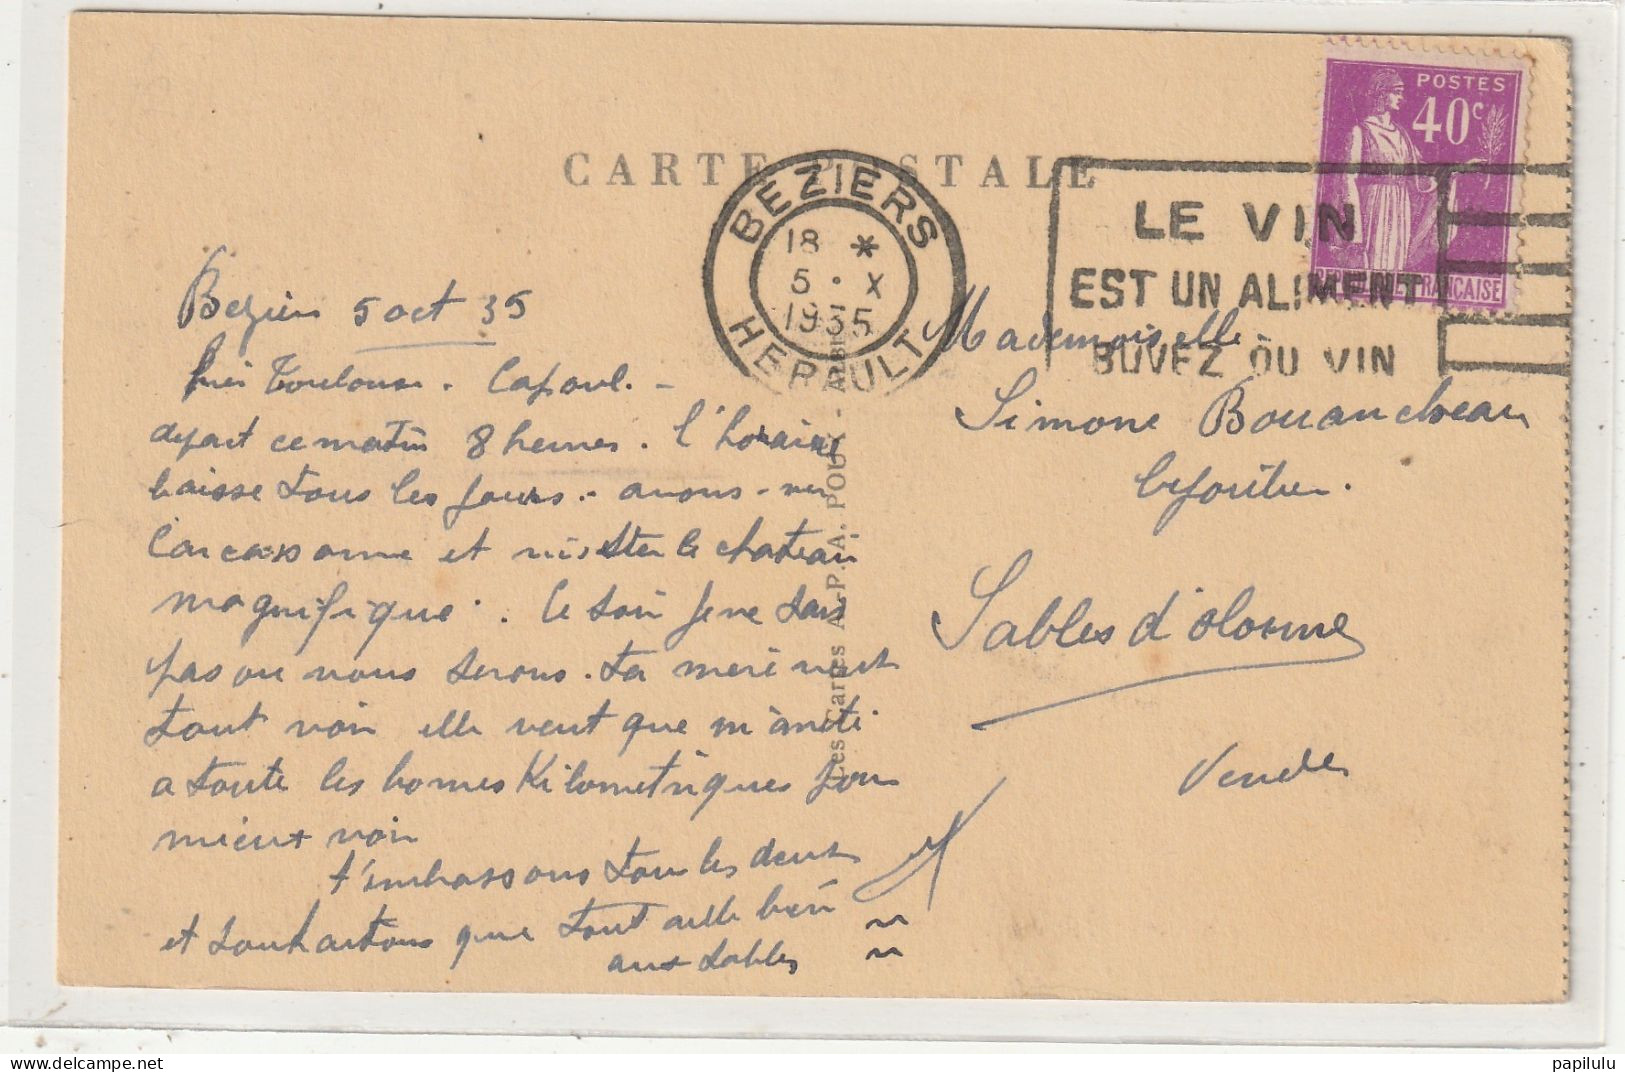 CARTE POSTALE
BEZIERS
18 *
5 · X
1935
HERAULT
LE VIN
EST UN ALIMENT
BUVEZ DU VIN
POSTES
40c
REPUBLIQUE FRANÇAISE
Beziers 5 oct 35
hier Toulouse . Capoul. -
depart ce matin 8 heures . l'horaire
baisse tous les jours - avons - vu
Carcassonne et visiter le chateau
magnifique . Ce soir je ne sais
pas ou nous serons . ta mere veut
tout voir elle veut que m'arrete
a toute les bornes Kilometriques pour
mieux voir
t'embrassons tous les deux
et souhaitons que tout aille bien
aux Sables
Les Cartes A.P.A. POUX - ALBI
Mademoiselle
Simone Bouancheau
Sables d'olonne
Vendee
papilulu